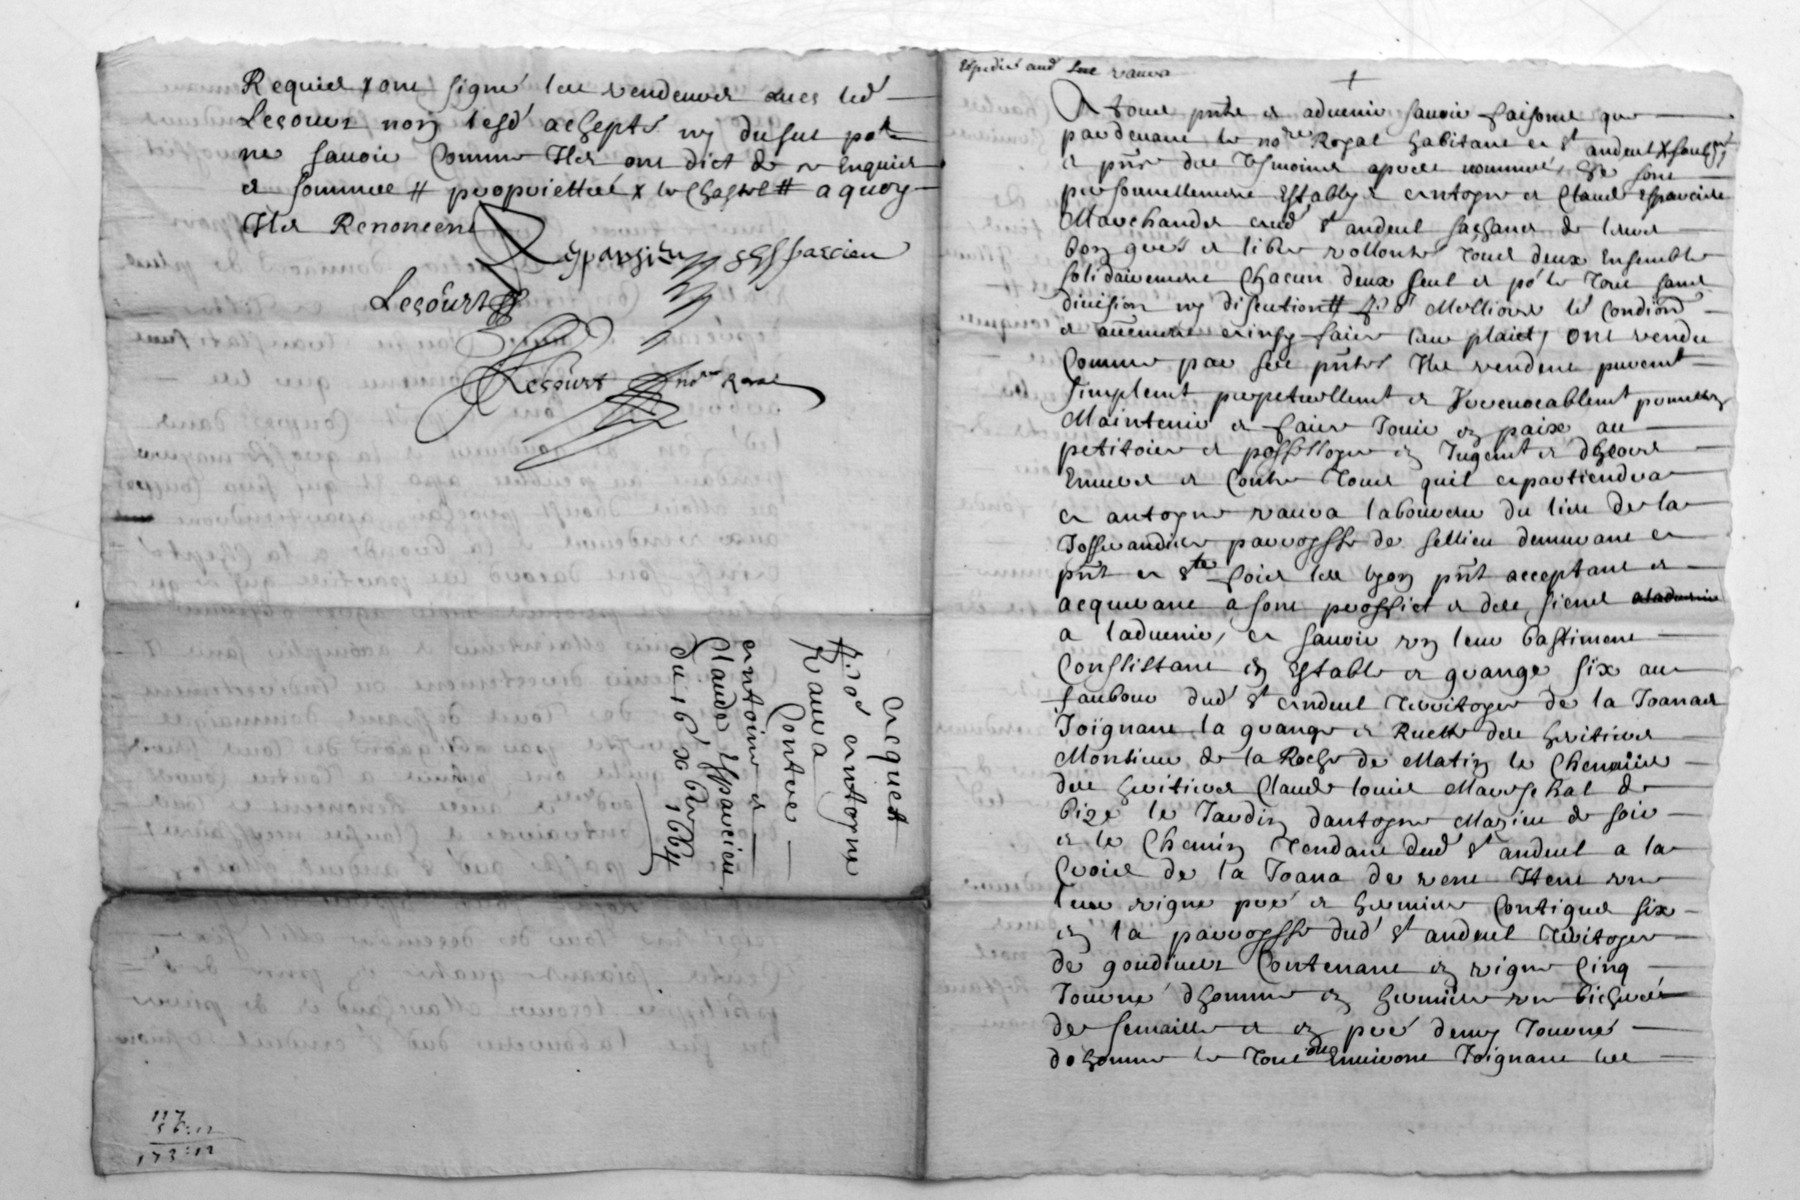 Requier & ont signé les vendeurs avec led
Lecourt non lesd acheptr ny dusur po.t
ne savoir comme Ils ont dict de ce enquier
et sommes # proprietteé x le chaste # a quoy
Ils Renoncent
Esparsieu Esparcieu
Lecourt
Lecourt no.re Royal
Acquest
P. Anthoyne
Rauva
Contre
Antoine et
Claude Esparcieu
du 16 xbre 1664
117
56:12
173:12
Expedié aud Sr rauva
A tous pnts et advenir savoir faisons que
pardevant le no.re Royal habitant a St andeul x soubz.né
et pnce des tesmoins apres nommés, se sont
personnellement Establys Antoyne et Claude Esparcieu
Marchands aud St andeul sachants de leurs
bon gres et libre vollonte tous deux Ensemble
solidairement chacun deux seul et po.r le tout sans
division ny discution # Mellieur
et aultrement Ainsy faire leur plaict, ont vendu
Comme par ses pntes Ils vendent purement
simplemt perpetuellemt et Irrevocablemt promettre
Maintenir et faire Jouir en paix au
petitoire et possessoyre en Jugemt et dheors
Envers et Contre Tous quil apartiendra
a antoyne rauva laboureur du lieu de la
Josserandiere parroysse de sellieu demurant a
pnt a Ste foire les lyon pnt acceptant et
acquerant a sont proffict et des siens
a ladvenir, a savoir un leur bastiment
Conssistant en Estable et grange six au
faubour dud St Andeul Territoyre de la Joanas
Joignant la grange et Ruette des heritiers
Monsieur de la Roche de Matin le
des heritiers Claude louis Mareschal de
bize le Jardin dantoyne Mazieu de soir
et le Chemin Tendant dud St andeul a la
Croix de la Joana de vent Item une
leur vigne pré et hermiere Contigus six
en la parroysse dud St andeul Territoyre
de goudinet Contenant en vigne Cinq
Journé dhomme en hermiere une bicherée
de semaille et en pré demy Journé
dehomme le Tout Environt Joignant les